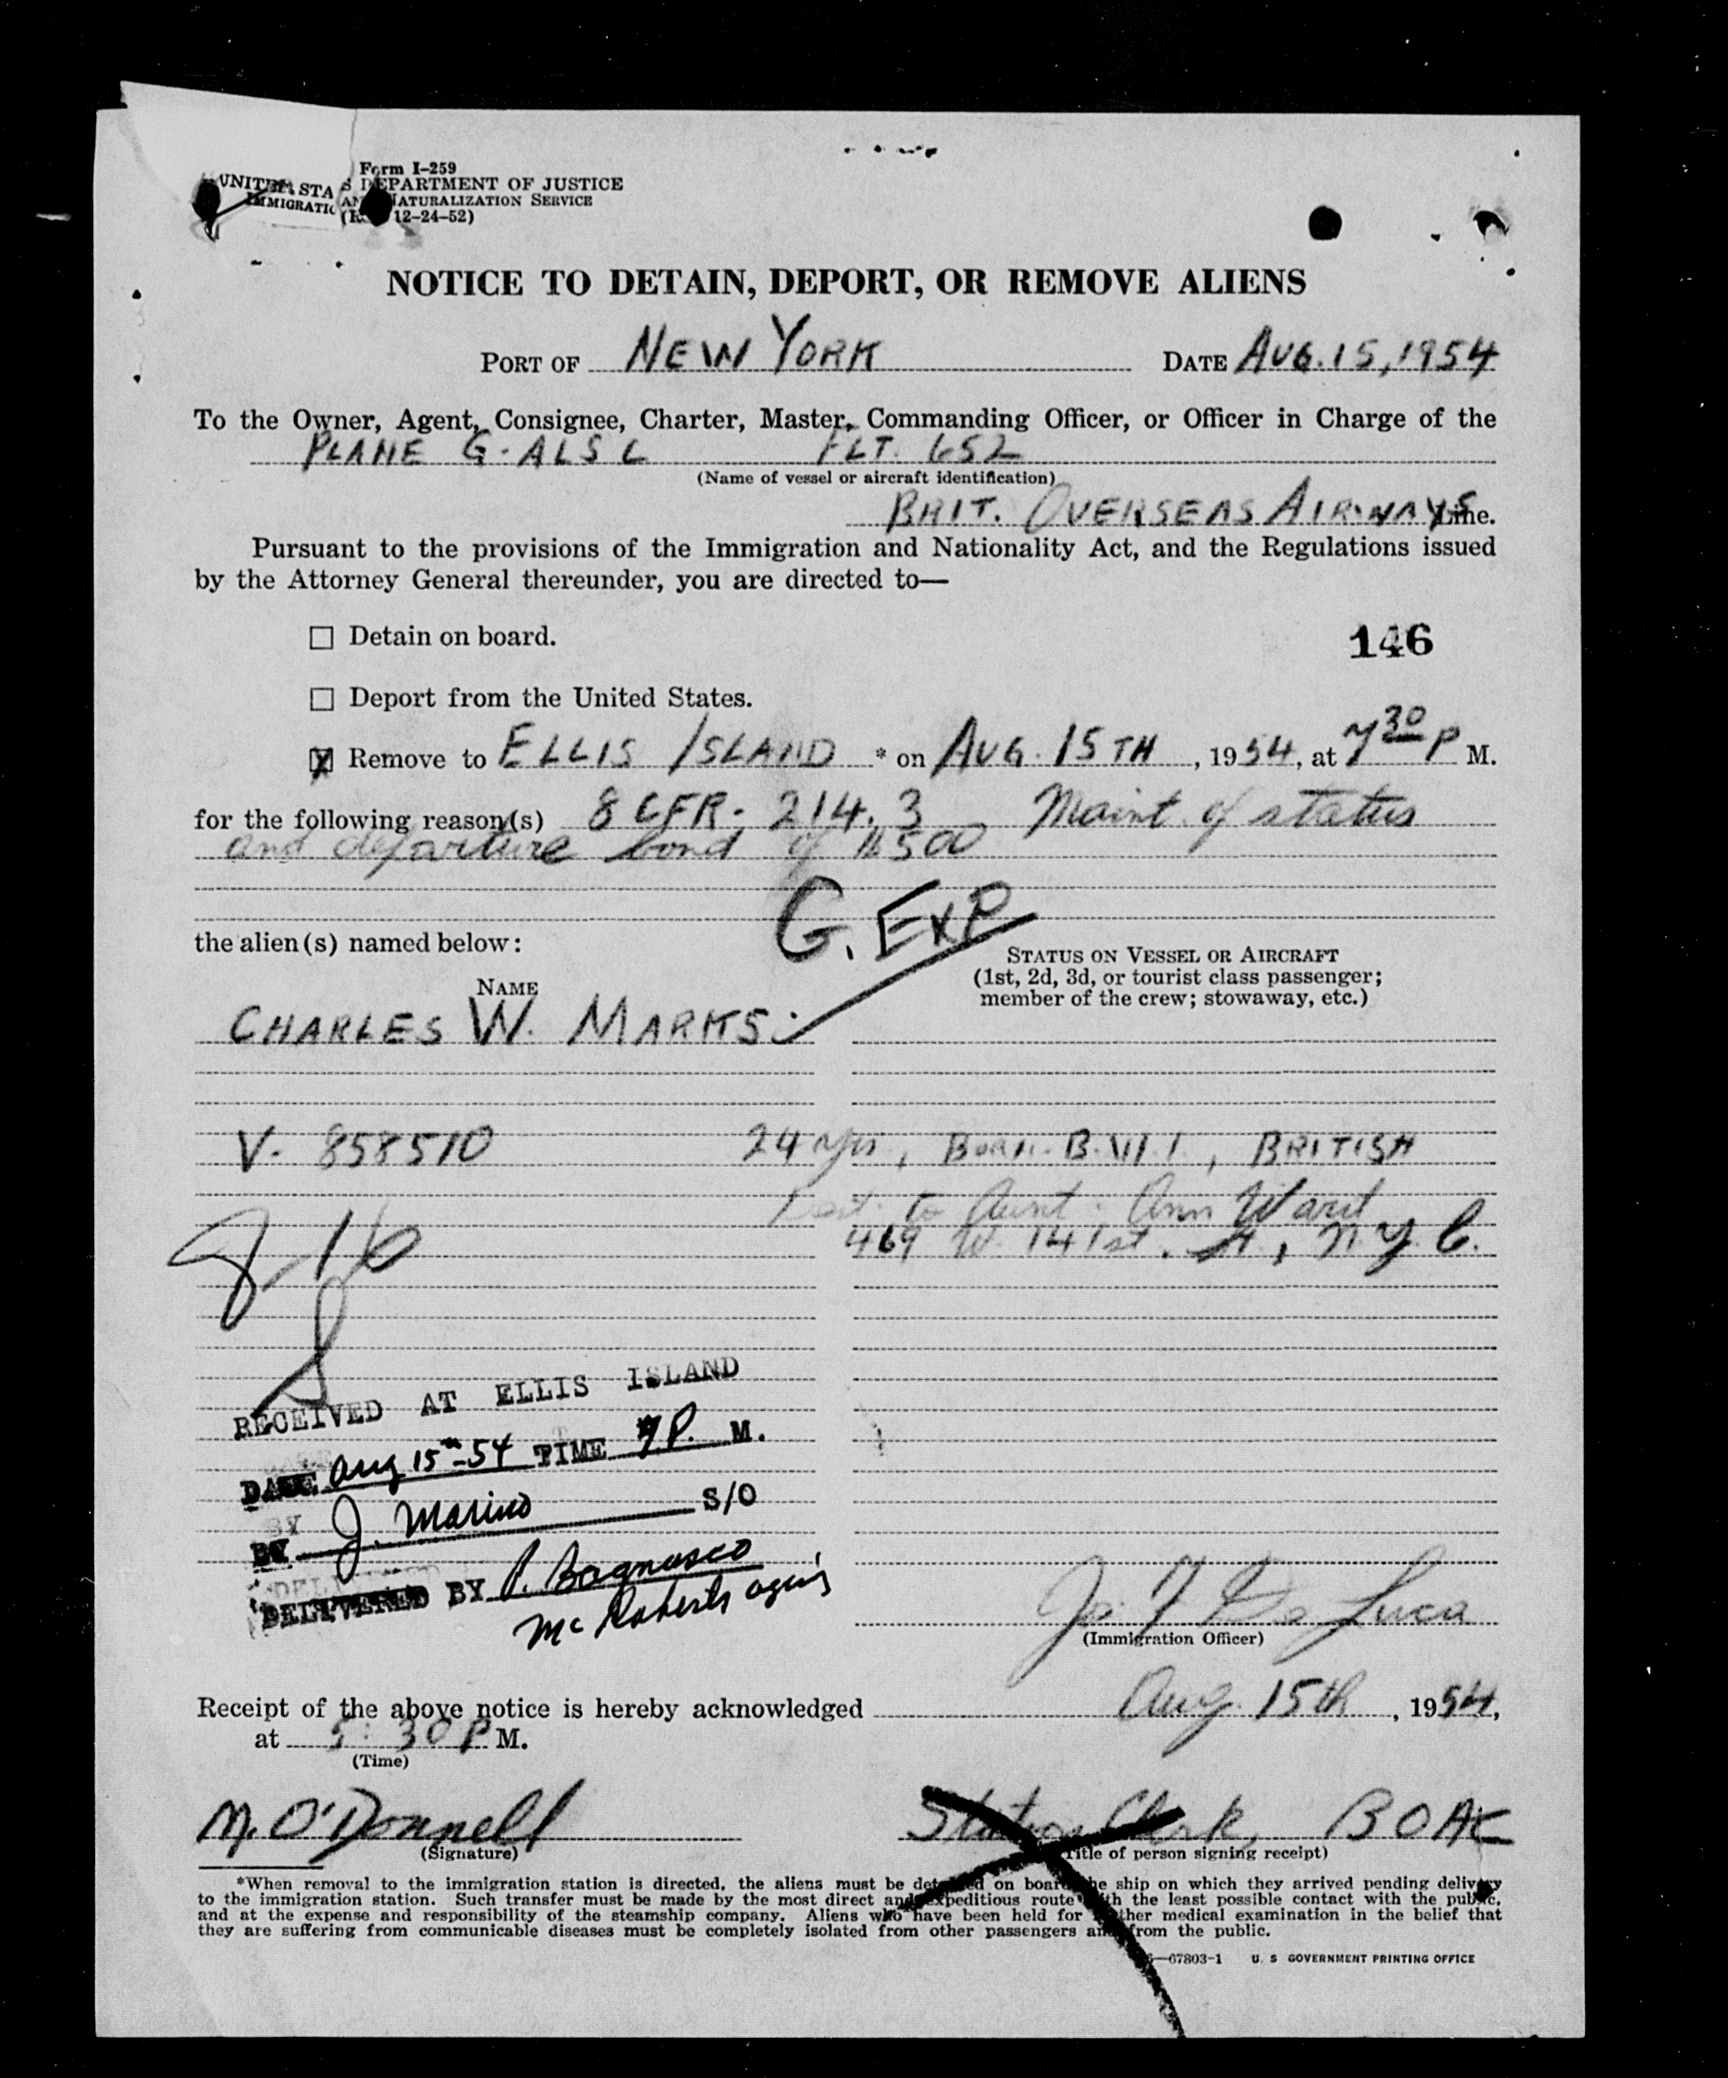 Form I-259
UNITED STATES DEPARTMENT OF JUSTICE
IMMIGRATION AND NATURALIZATION SERVICE
12-24-52)
NOTICE TO DETAIN, DEPORT, OR REMOVE ALIENS
PORT OF NEW YORK DATE AUG. 15, 1954
To the Owner, Agent, Consignee, Charter, Master, Commanding Officer, or Officer in Charge of the
PLANE G-ALSC FLT. 652
(Name of vessel or aircraft identification)
BRIT. OVERSEAS AIRWAYS Line.
Pursuant to the provisions of the Immigration and Nationality Act, and the Regulations issued
by the Attorney General thereunder, you are directed to—
☐ Detain on board.
146
☐ Deport from the United States.
☒ Remove to ELLIS ISLAND * on AUG. 15TH, 1954, at 7 30 P M.
for the following reason(s) 8 CFR. 214.3 Maint. of status
and departure bond of $500
G. EXP
the alien(s) named below:
STATUS ON VESSEL OR AIRCRAFT
(1st, 2d, 3d, or tourist class passenger;
member of the crew; stowaway, etc.)
NAME
CHARLES W. MARKS
V. 858510 24 yrs, BORN. B.W.I, BRITISH
to Aunt. Ann Ward
469 W. 141st. St, N.Y.C.
RECEIVED AT ELLIS ISLAND
DATE Aug 15th-54 TIME 7 P. M.
BY J. Marino S/O
DELIVERED BY P. Bagnasco
McRoberts
De Luca
(Immigration Officer)
Receipt of the above notice is hereby acknowledged Aug. 15th, 1954,
at 5:30 P M.
(Time)
M. O'Donnell Station Clerk, BOAC
(Signature) (Title of person signing receipt)
*When removal to the immigration station is directed, the aliens must be detained on board the ship on which they arrived pending delivery
to the immigration station. Such transfer must be made by the most direct and expeditious route with the least possible contact with the public,
and at the expense and responsibility of the steamship company. Aliens who have been held for further medical examination in the belief that
they are suffering from communicable diseases must be completely isolated from other passengers and from the public.
67803-1 U. S GOVERNMENT PRINTING OFFICE